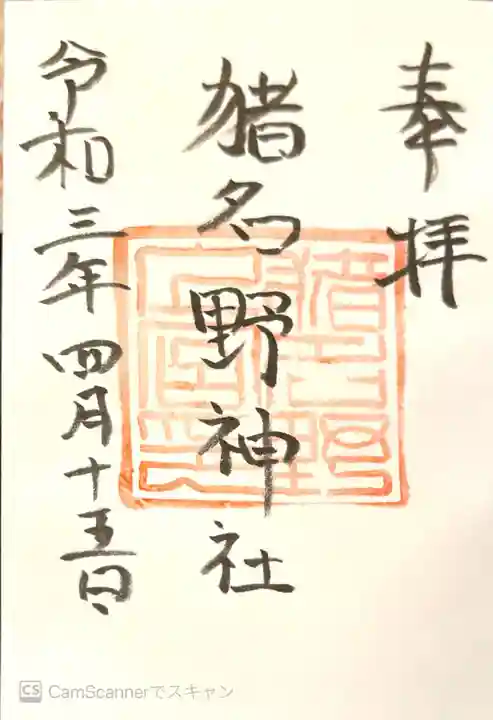 奉拝
猪名野神社
令和三年四月十五日
CS CamScannerでスキャン